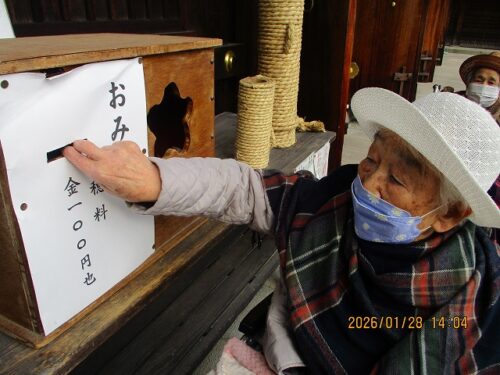 おみ
穂料
金一〇〇円也
2026/01/28 14:04